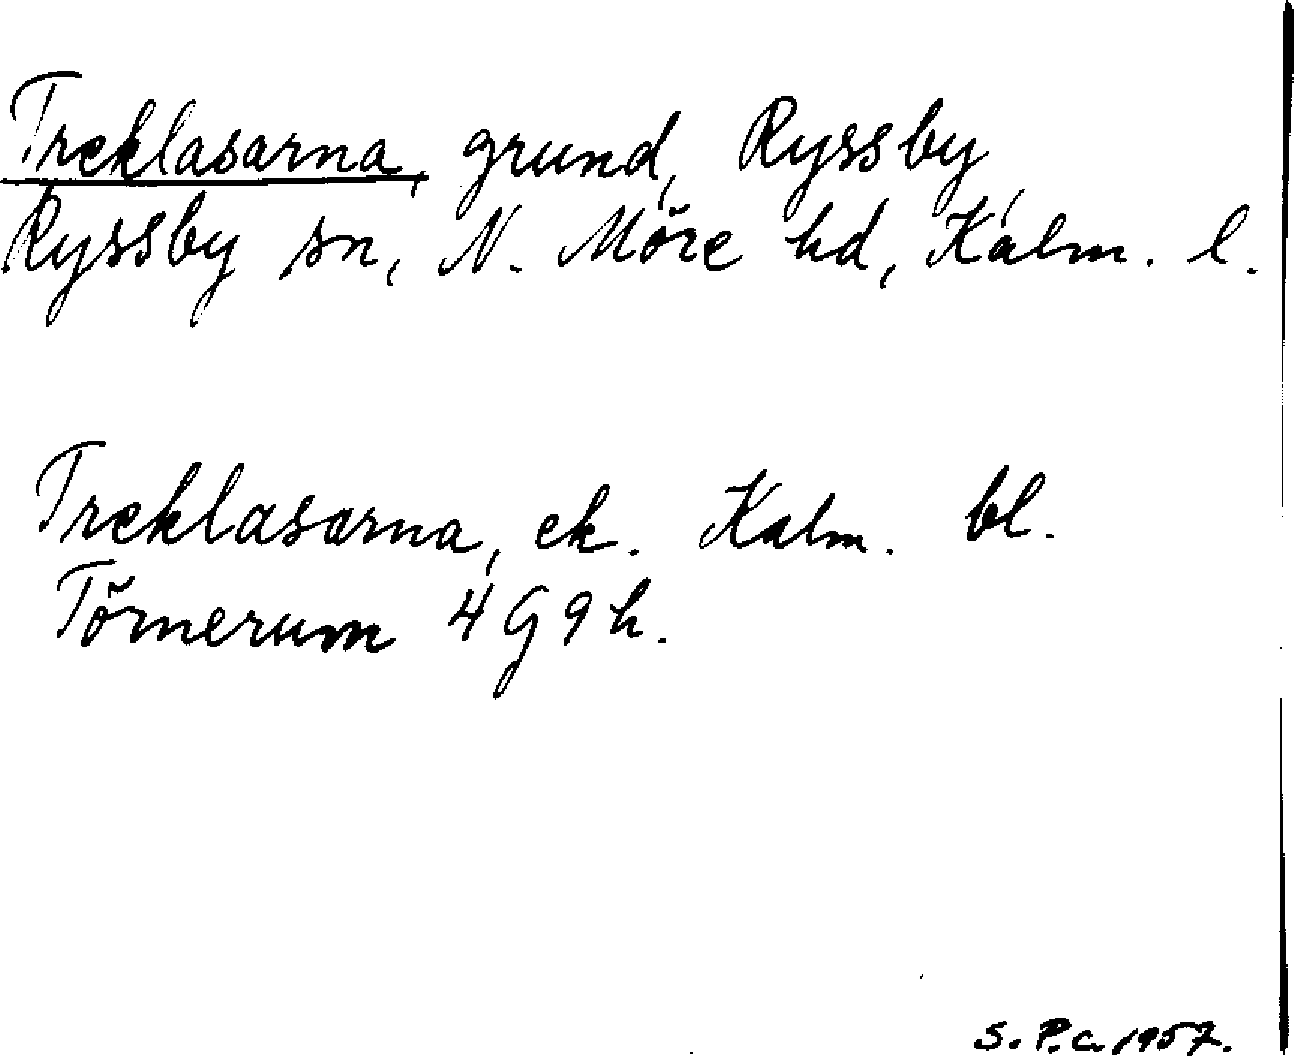 Treklasarna, grund, Ryssby,
Ryssby sn, N. Möre hd, Kalm. l.
Treklasarna, ek. Kalm. bl.
Törnerum 4 G 9 h.
S. P. c. 1957.